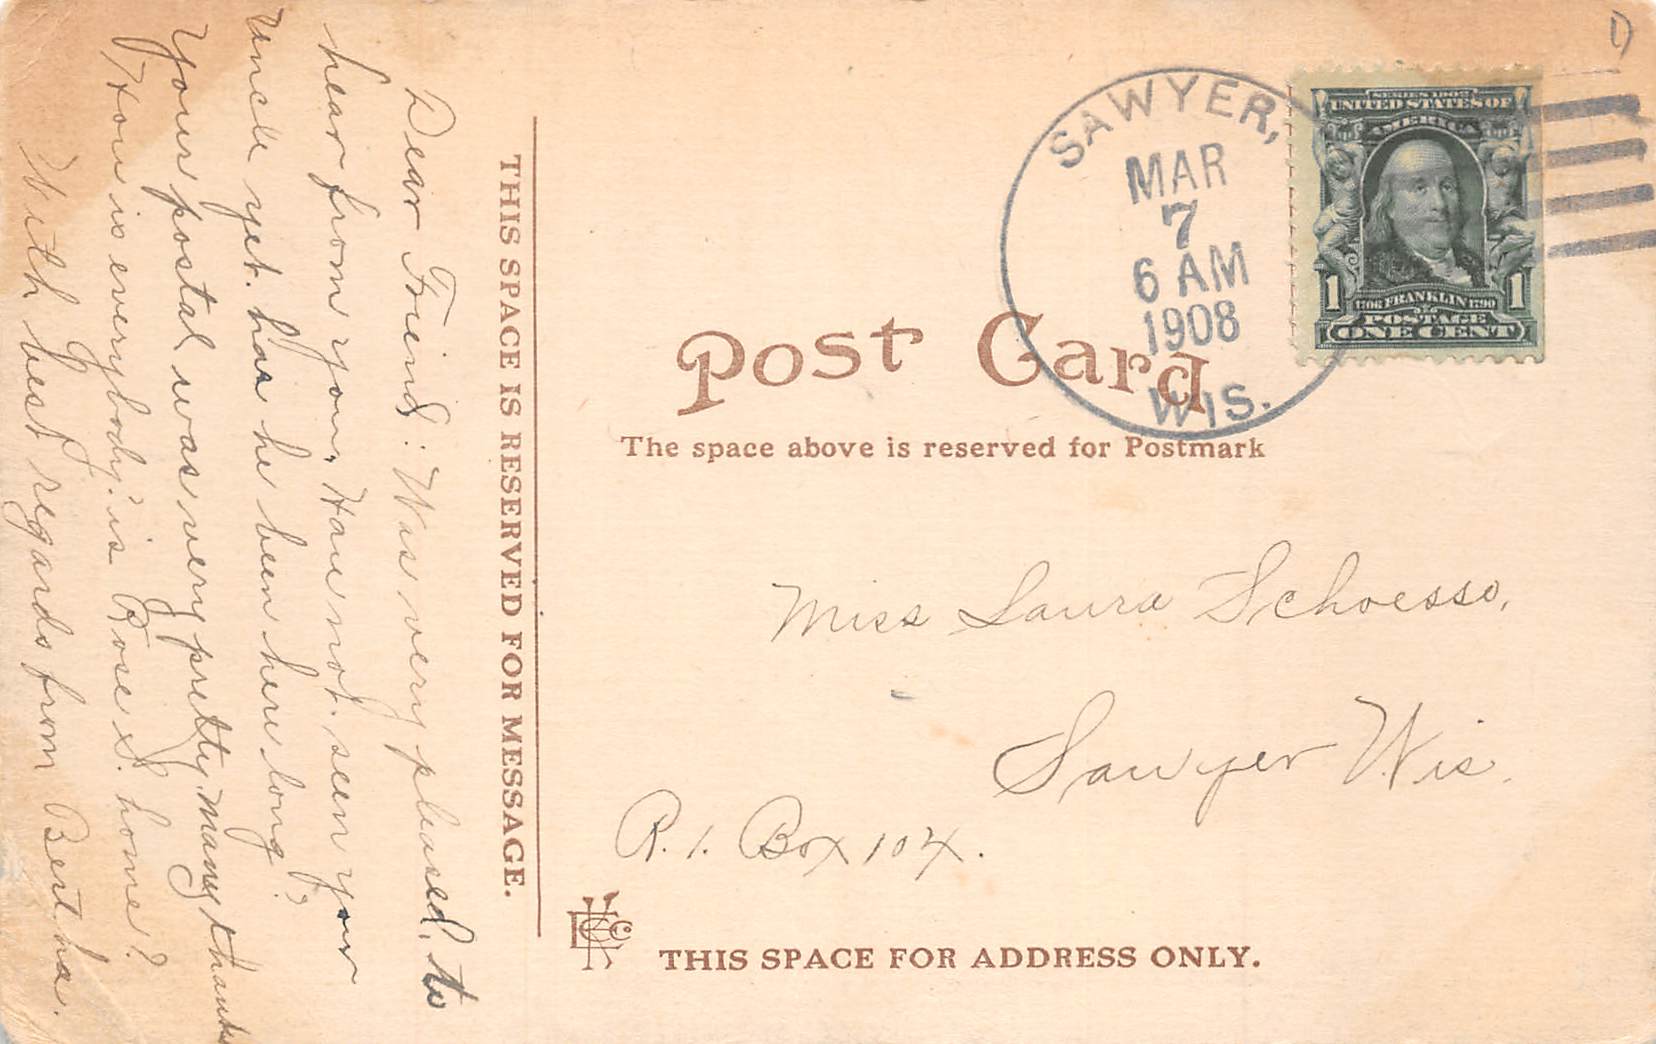 Dear Friend: Was very pleased, to
hear from you, Have not. seen your
uncle yet. has he been here long?
Your postal was very pretty. Many thanks
How is everybody? is Rose S. home?
With best regards from Bertha.
THIS SPACE IS RESERVED FOR MESSAGE.
SAWYER,
MAR
7
6 AM
1908
WIS.
SERIES 1902
UNITED STATES OF
AMERICA
1 1706 FRANKLIN 1790 1
POSTAGE
ONE CENT
Post Card
The space above is reserved for Postmark
Miss Laura Schoesso,
Sawyer Wis.
R. 1. Box 104.
THIS SPACE FOR ADDRESS ONLY.